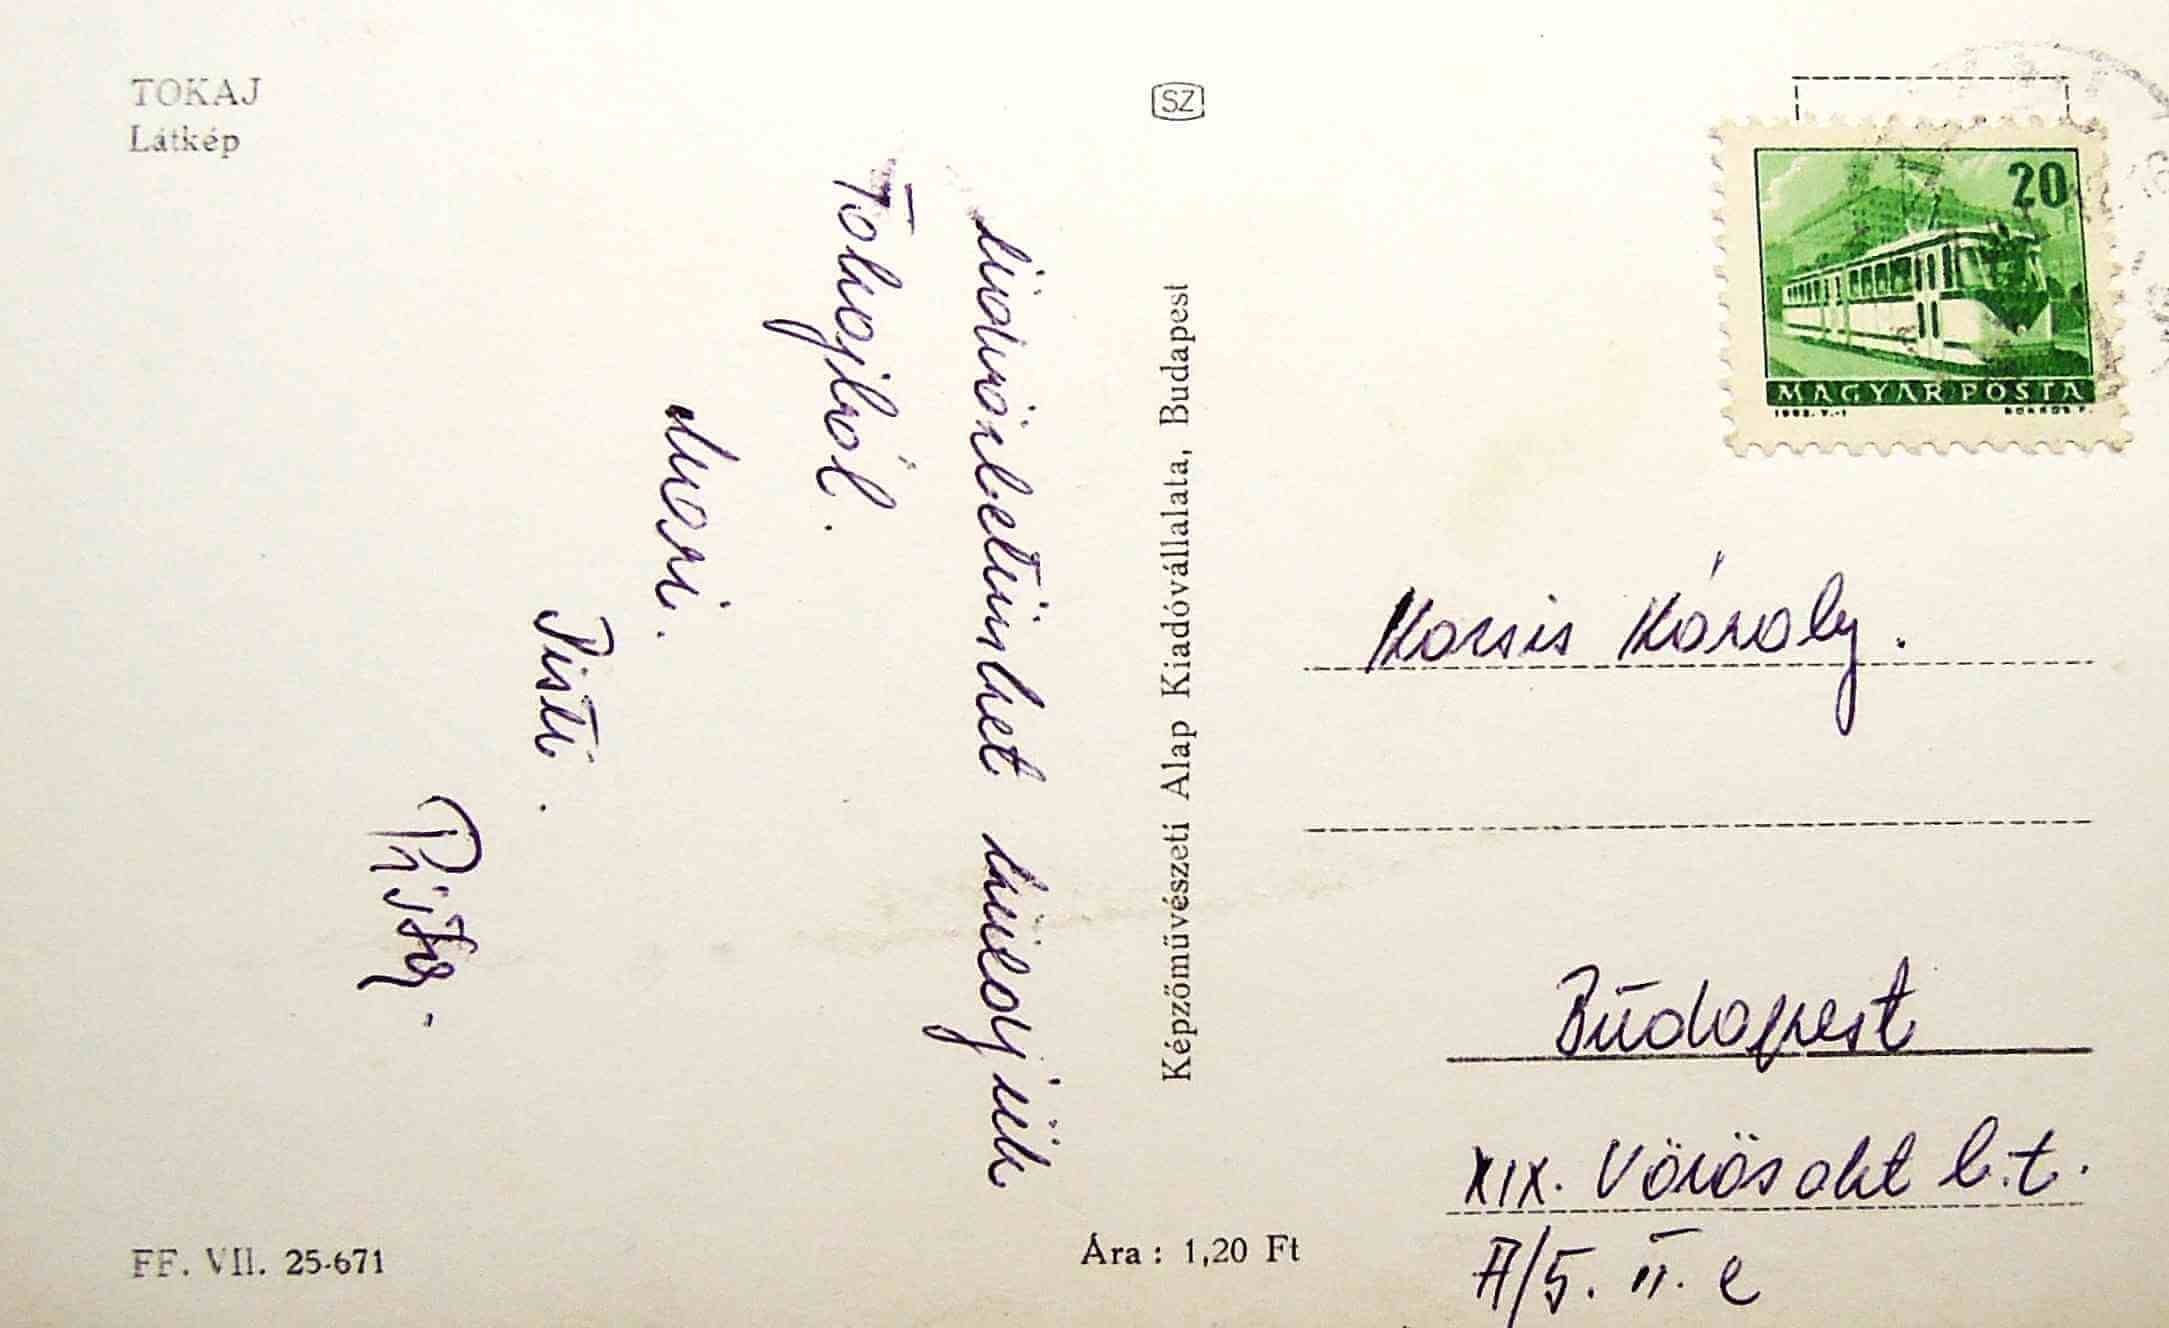 TOKAJ
Látkép
SZ
Üdvözletünket küldjük
Tokajból.
Mari.
Pisti.
Képzőművészeti Alap Kiadóvállalata, Budapest
20
MAGYAR POSTA
Kocsis Károly.
Budapest
XIX. Vörös okt l.t.
A/5. II. e
FF. VII. 25-671
Ára: 1,20 Ft